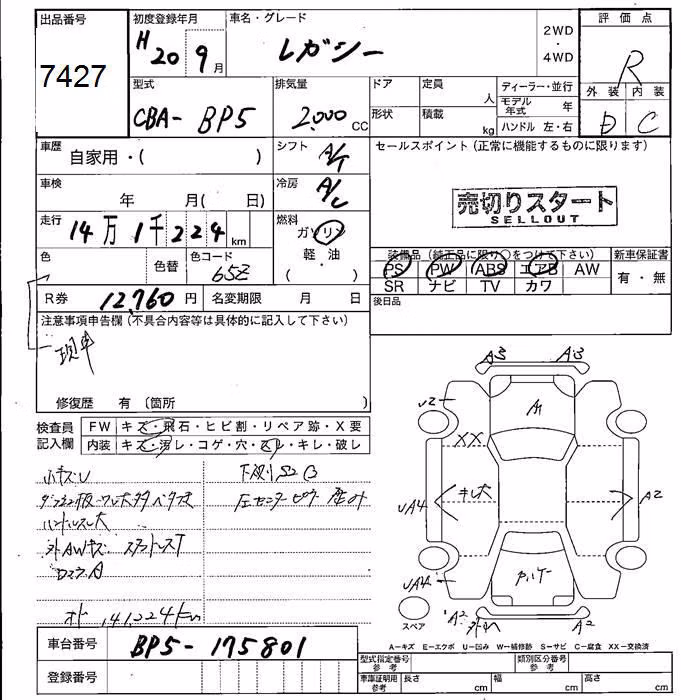 出品番号
7427
初度登録年月
H 20 9月
車名・グレード
レガシー
2WD
・
4WD
評価点
R
外装 内装
D C
型式
CBA- BP5
排気量
2,000 CC
ドア
形状
定員
人
積載
kg
ディーラー・並行
モデル年式 年
ハンドル 左・右
車歴
自家用・( )
シフト
A/T
車検
年 月( 日)
冷房
A/C
走行
14万1千224km
燃料
ガソリン
軽・油
( )
色
色替
色コード
65Z
R券 12,760円
名変期限 月 日
セールスポイント(正常に機能するものに限ります)
売切りスタート
SELLOUT
装備品(純正品に限り○をつけて下さい)
PS PW ABS エアB AW
SR ナビ TV カワ
新車保証書
有・無
後日品
注意事項申告欄(不具合内容等は具体的に記入して下さい)
現車
修復歴 有(箇所
検査員記入欄
FW キズ・飛石・ヒビ割・リペア跡・X要
内装 キズ・汚レ・コゲ・穴・スレ・キレ・破レ
ハンドルスレ大
外AWキズ スタットレスT
オド 141224km
下廻りS2 C
A3 A3
A1
U2
XX
キレ大
UA4
A2
UA4
A2
A2
スペア
A=キズ E=エクボ U=凹み W=補修跡 S=サビ C=腐食 XX=交換済
車台番号
BP5-175801
登録番号
型式指定番号
参考
類別区分番号
参考
車庫証明用
参考
長さ cm
幅 cm
高さ cm